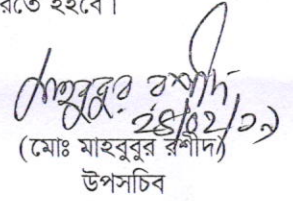 হবে।
মাহবুবুর রশীদ
২৪/০২/১৯
(মোঃ মাহবুবুর রশীদ)
উপসচিব